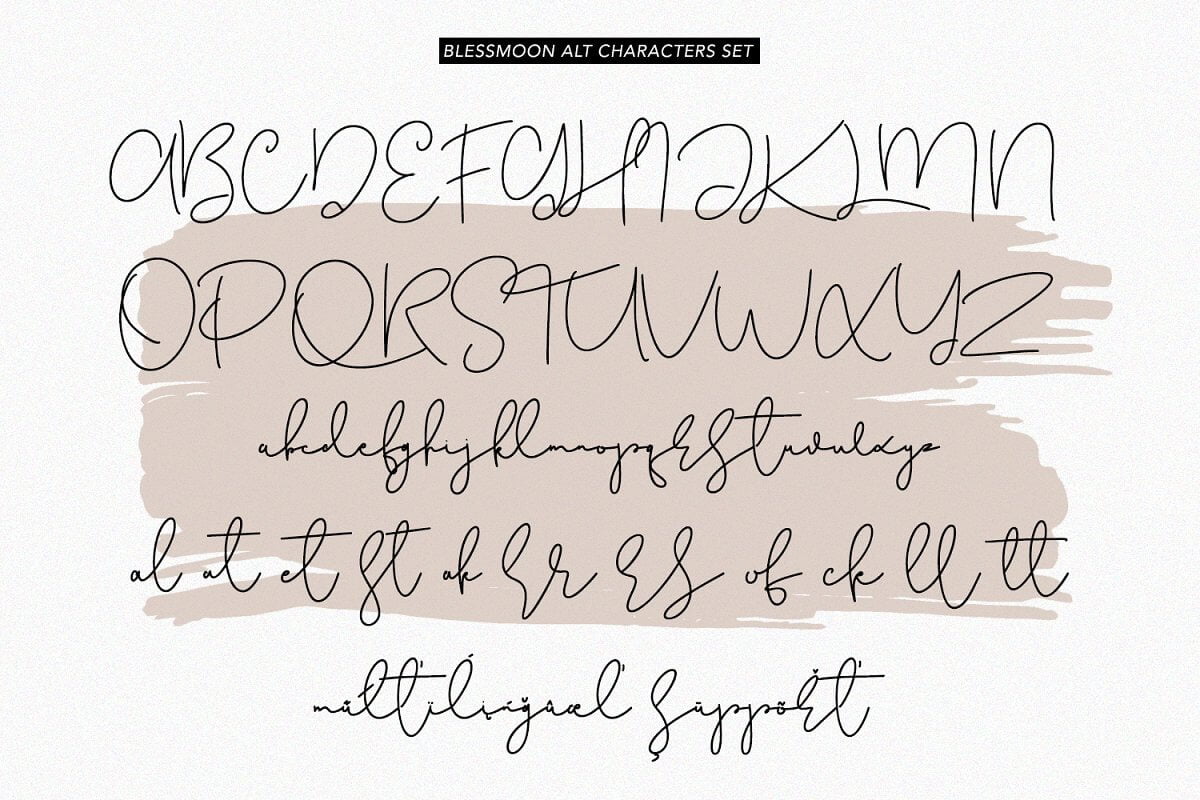 BLESSMOON ALT CHARACTERS SET
ABCDEFGHIJKLMN
OPQRSTUVWXYZ
abcdefghijklmnopqrstuvwxyz
al at et st ak sr rs of ck ll tt